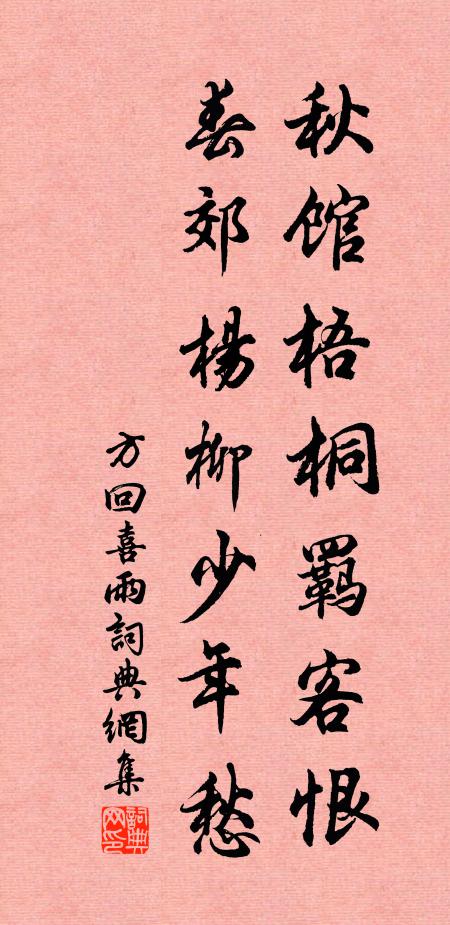 秋馆梧桐羁客恨
春郊楊柳少年愁
方回喜雨詞典網集
詞典网印